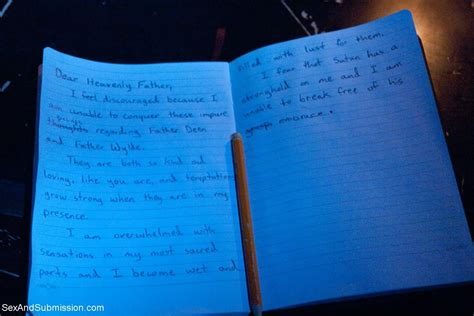 Dear Heavenly Father,
I feel discouraged because I
am unable to conquer these impure
thoughts regarding Father Deen
and Father Wylde.
They are both so kind and
loving, like you are, and temptations
grow strong when they are in my
presence.
I am overwhelmed with
sensations in my most sacred
parts and I become wet and
filled with lust for them.
I fear that Satan has a
stronghold on me and I am
unable to break free of his
embrace.
SexAndSubmission.com